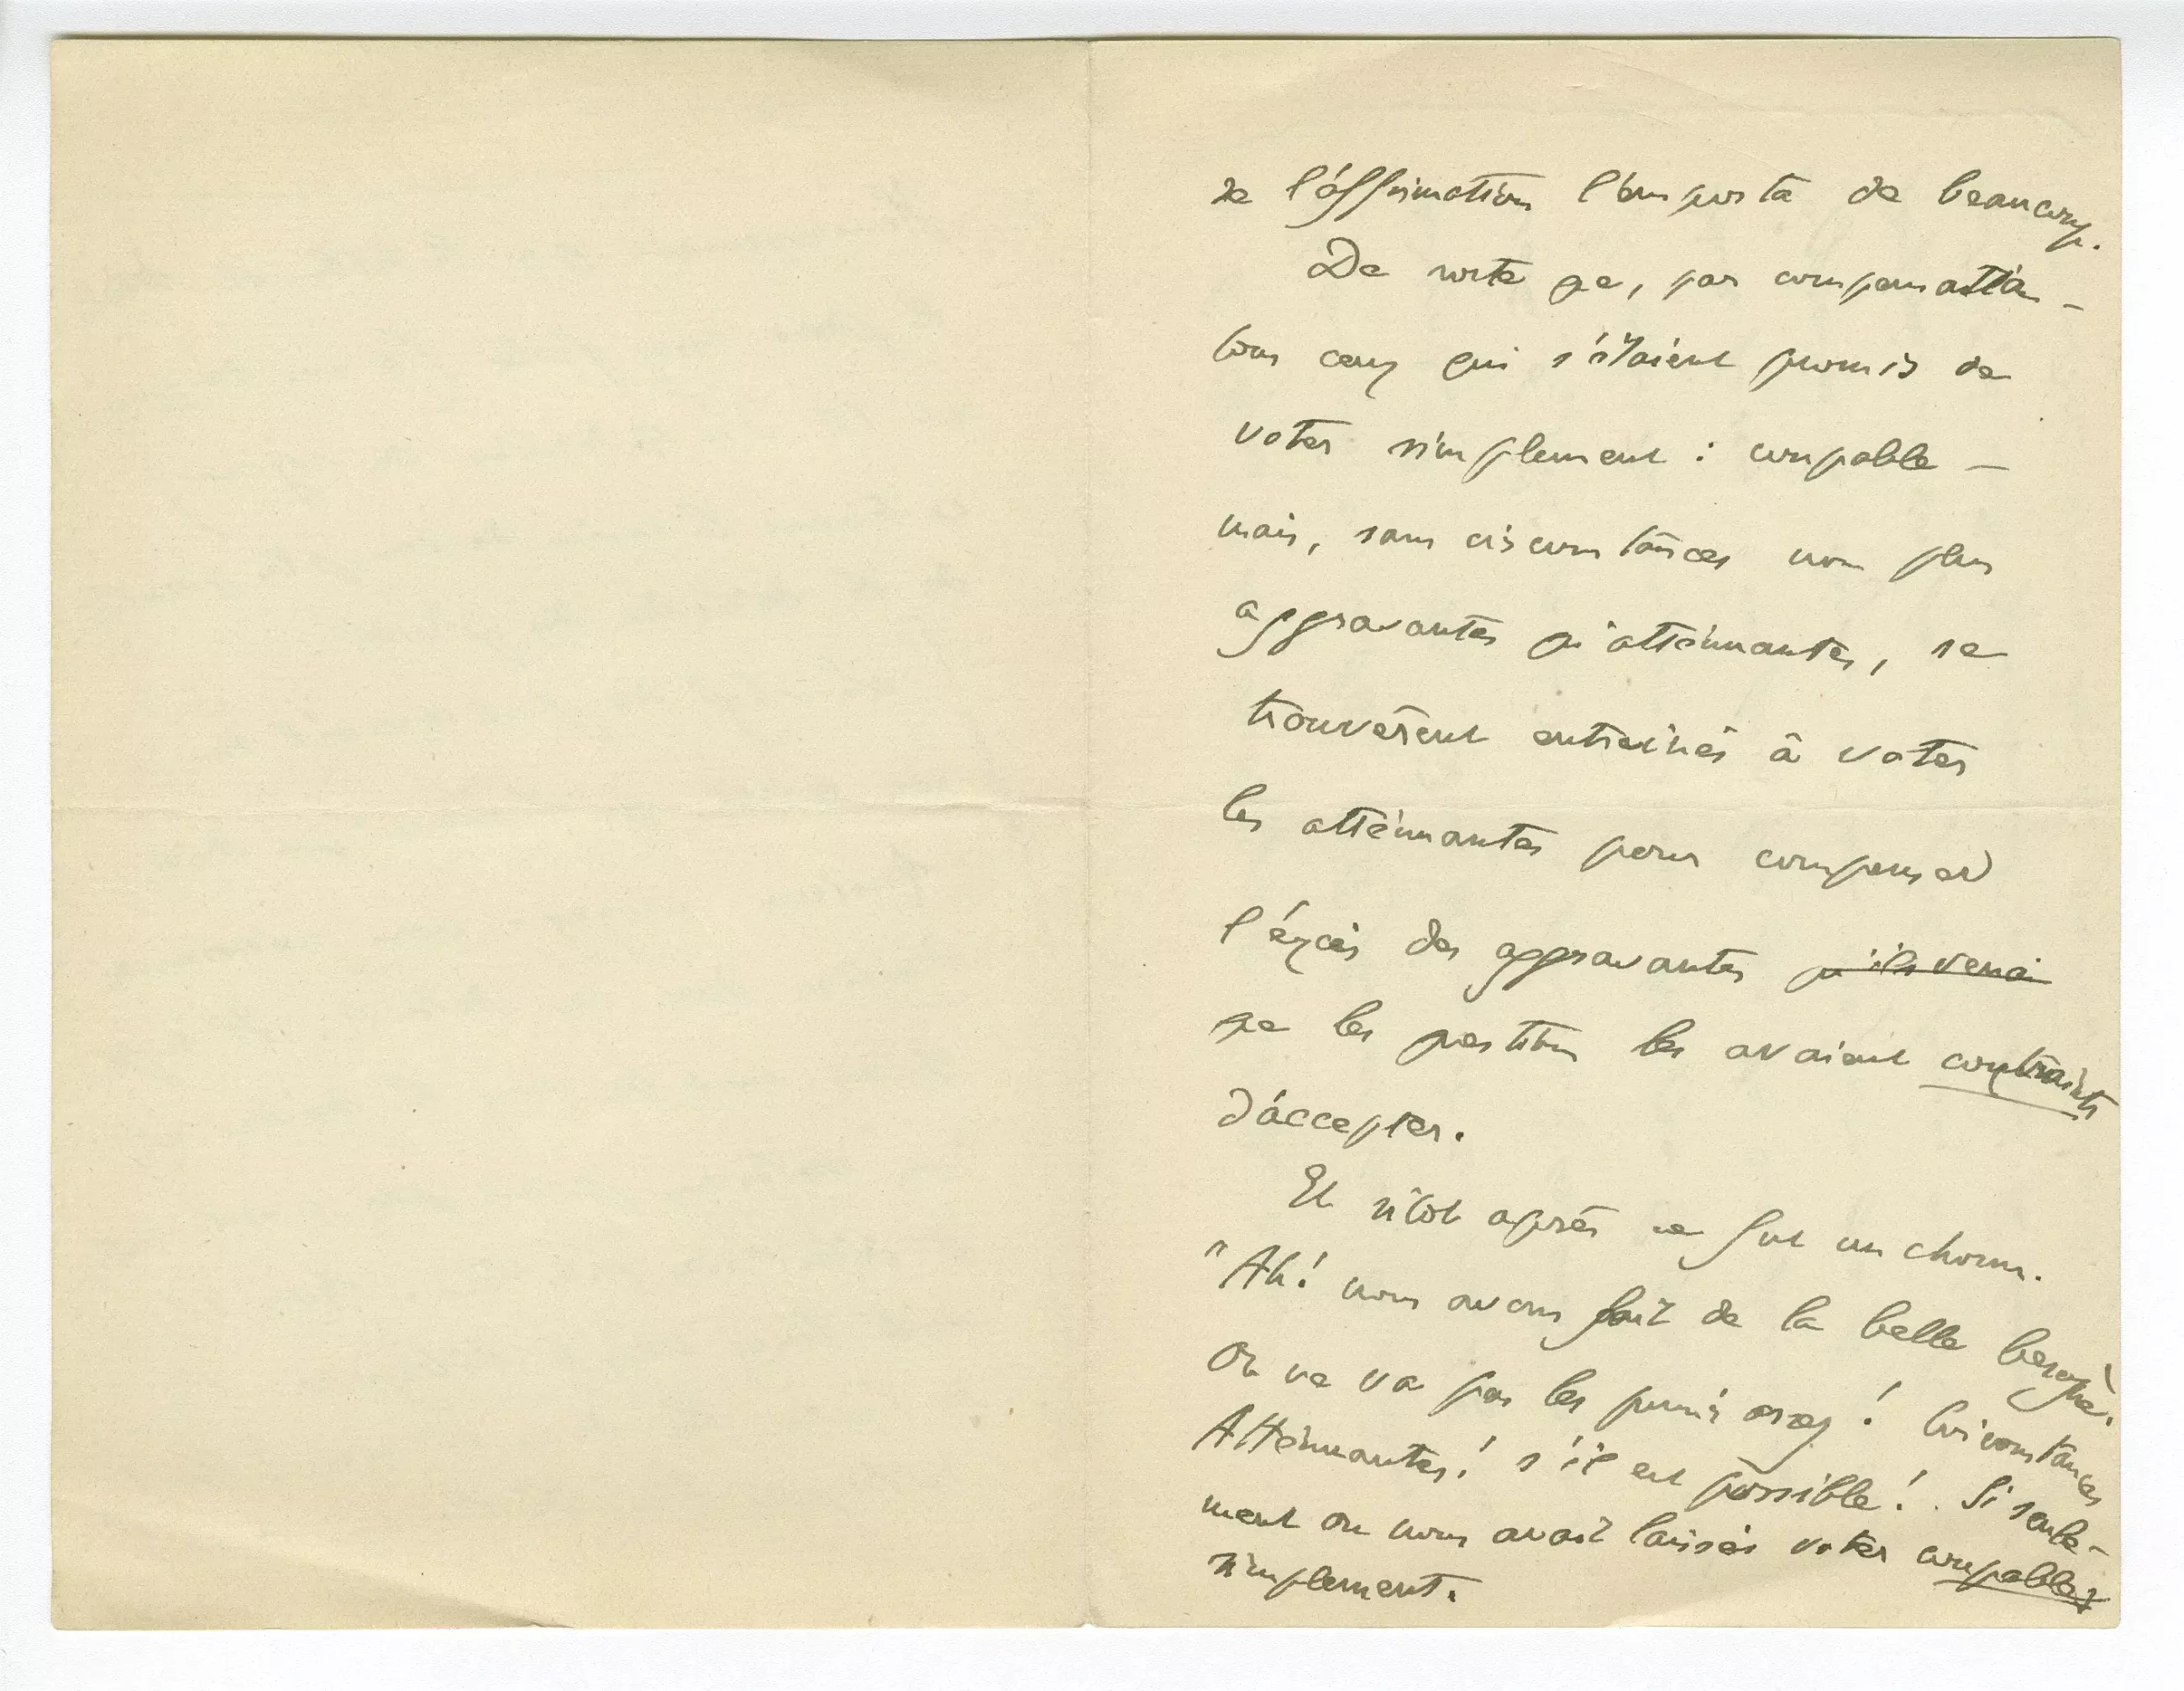 de l'affirmation l'emporta de beaucoup.
De sorte que, par compensation –
tous ceux qui s'étaient promis de
voter simplement : coupable –
mais, sans circonstances non plus
aggravantes qu'atténuantes, se
trouvèrent entraînés à voter
les atténuantes pour compenser
l'excès des aggravantes qu'ils venai
que les questions les avaient contraints
d'accepter.
Et sitôt après ce fut un chœur.
"Ah! nous avons fait de la belle besogne!
On ne va pas les punir assez! Circonstances
Atténuantes! s'il est possible! . Si seule-
ment on nous avait laissés voter coupables
simplement.